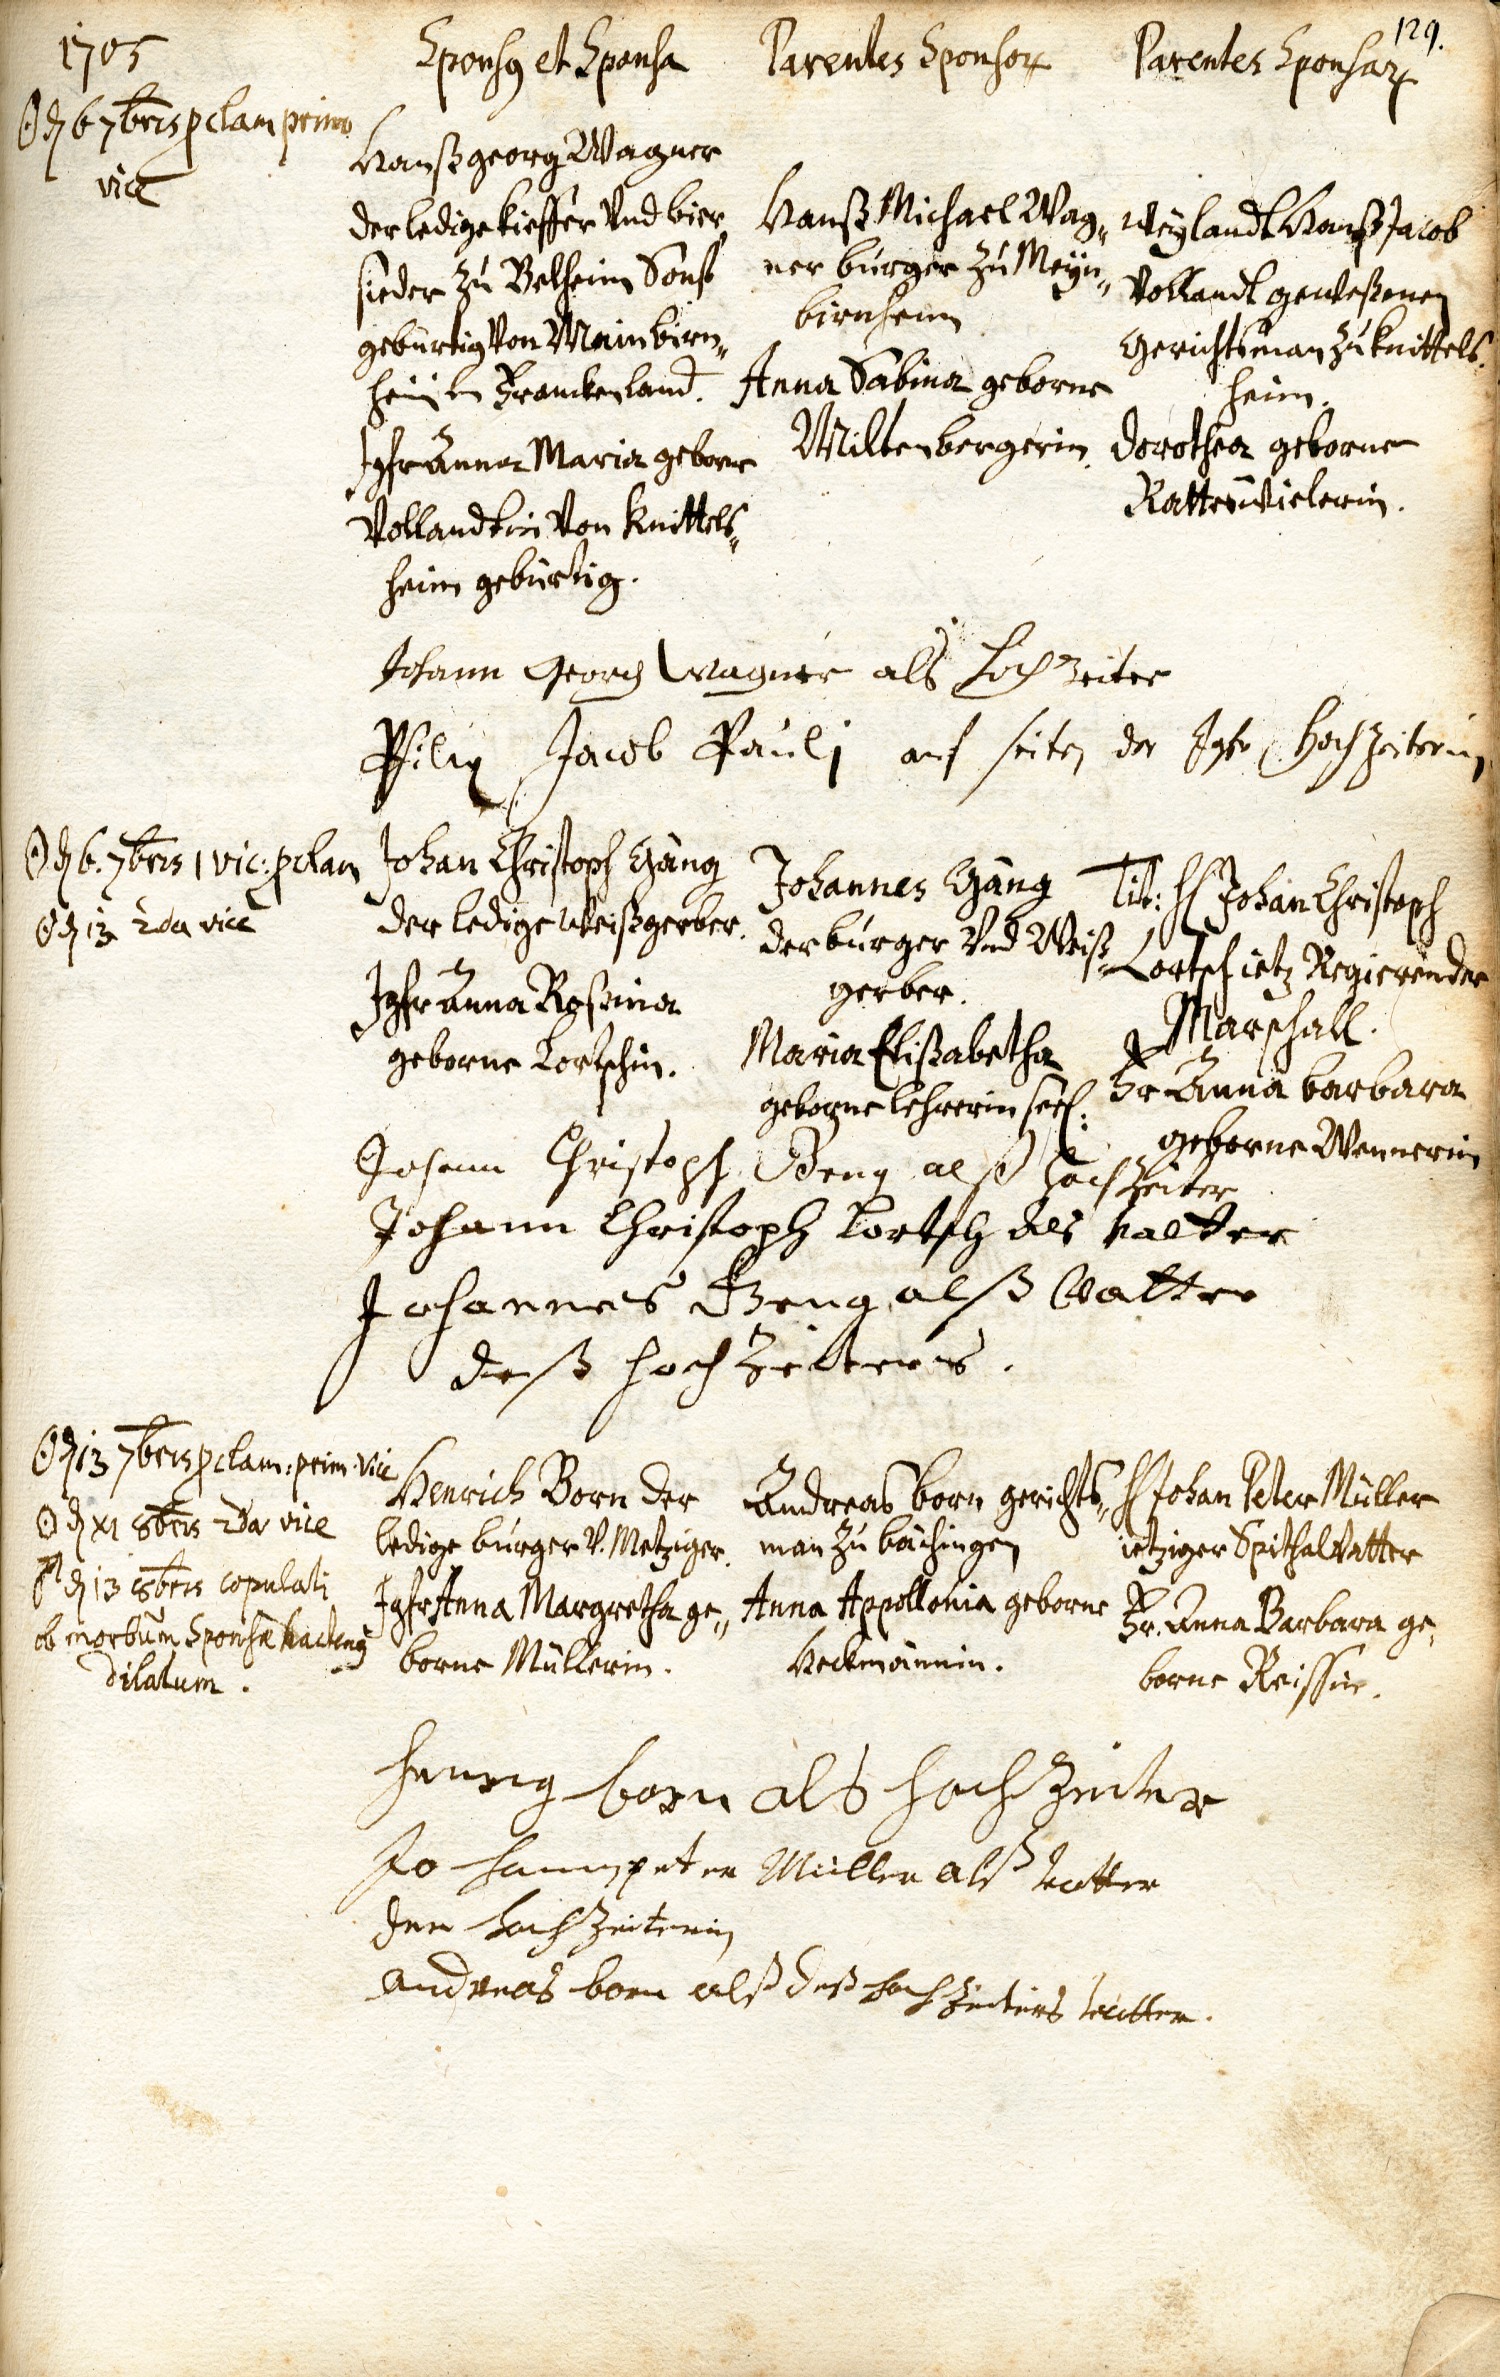 129.
1705
Sponsꝰ et Sponsa
Parentes Sponsoꝝ
Parentes Sponsaꝝ
☉ d 6 7bris pclam primo
vice
Hanß georg Wagner
der ledige kieffer Vnd bier„
sieder zu Belheim Sonst
gebürtig Von Mainbirn„
heim Franckenland.
Jgfr Anna Maria geborne
Vollandtin Von Knittels„
heim gebürtig.
Hanß Michael Wag„
ner burger zu Meyn„
birnheim
Anna Sabina geborne
Miltenbergerin.
Weylandt Hanß Jacob
Vollandt geweßenen
Gerichtsman zu Knittels.
heim.
Dorothea geborne
Rattenwielerin.
Johann Georg Wagner als hoch zeiter
Philip Jacob Pauli auf seiten der Jgfr Hochzeiterin
☉ d 6. 7bris 1 vic: pclam
☉ d 13 2da vice
Johan Christoph Gäng
der ledige Weißgerber.
Jgfr Anna Roßina
geborne Lortschin.
Johannes Gäng
der burger Vnd Weiß„
gerber.
Maria Elißabetha
geborne Lehrerin seel:
Tit: H Johan Christoph
Lortsch ietz Regierender
Marschall.
Fr Anna barbara
geborne Wennerin
Johann Christoph Geng alß hoch Zeiter
Johann Christoph Lortsch als Vatter
Johannes Geng alß Vatter
deß hoch Zeiters.
☉ d 13 7bris pclam: prim: vic
☉ d XI 8bris 2da vice
♂ d 13 8bris copulati
ob morbum Sponsæ hactenꝰ
dilatum.
Henrich Born der
ledige burger V. Metziger.
Jgfr Anna Margretha ge„
borne Müllerin.
Andreas born gerichts„
man zu bächingen
Anna Appollonia geborne
Heckmännin.
H Johan Peter Müller
ietziger Spithal Vatter
Fr. Anna Barbara ge„
borne Reissin.
Henrig born als hoch Zeiter
Johannpeter Müller alß Vatter
der hoch Zeiterin
andreas born alß deß hoch Zeiters Vatter.